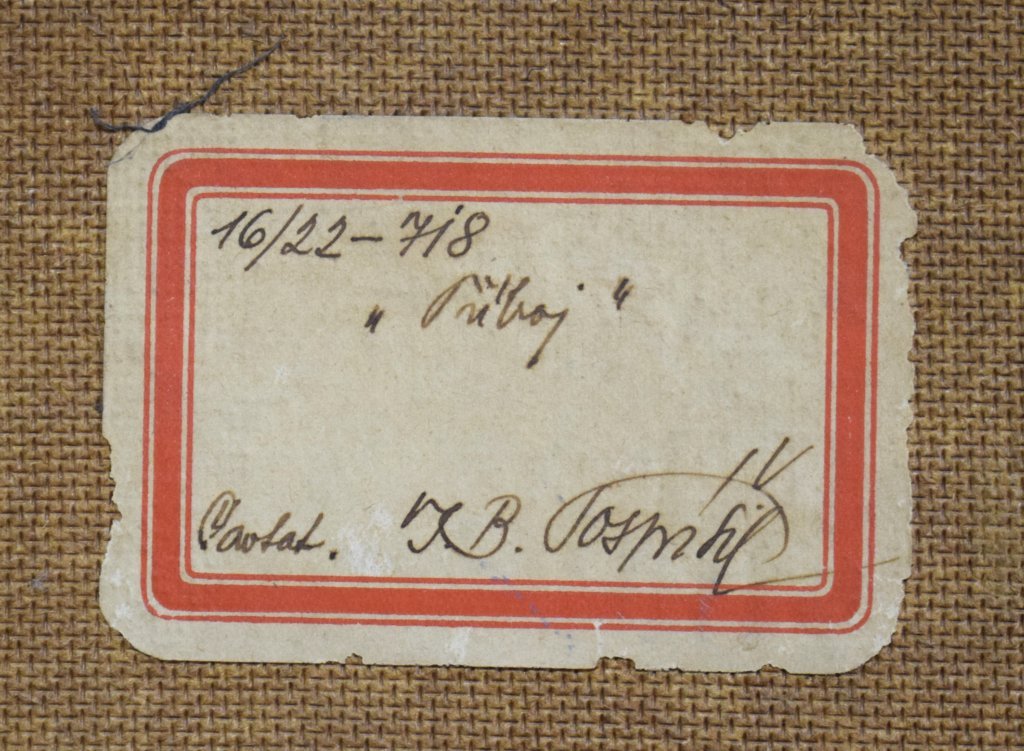 16/22 – 7/8
„ Příboj "
Cavtat. J. B. Pospíšil